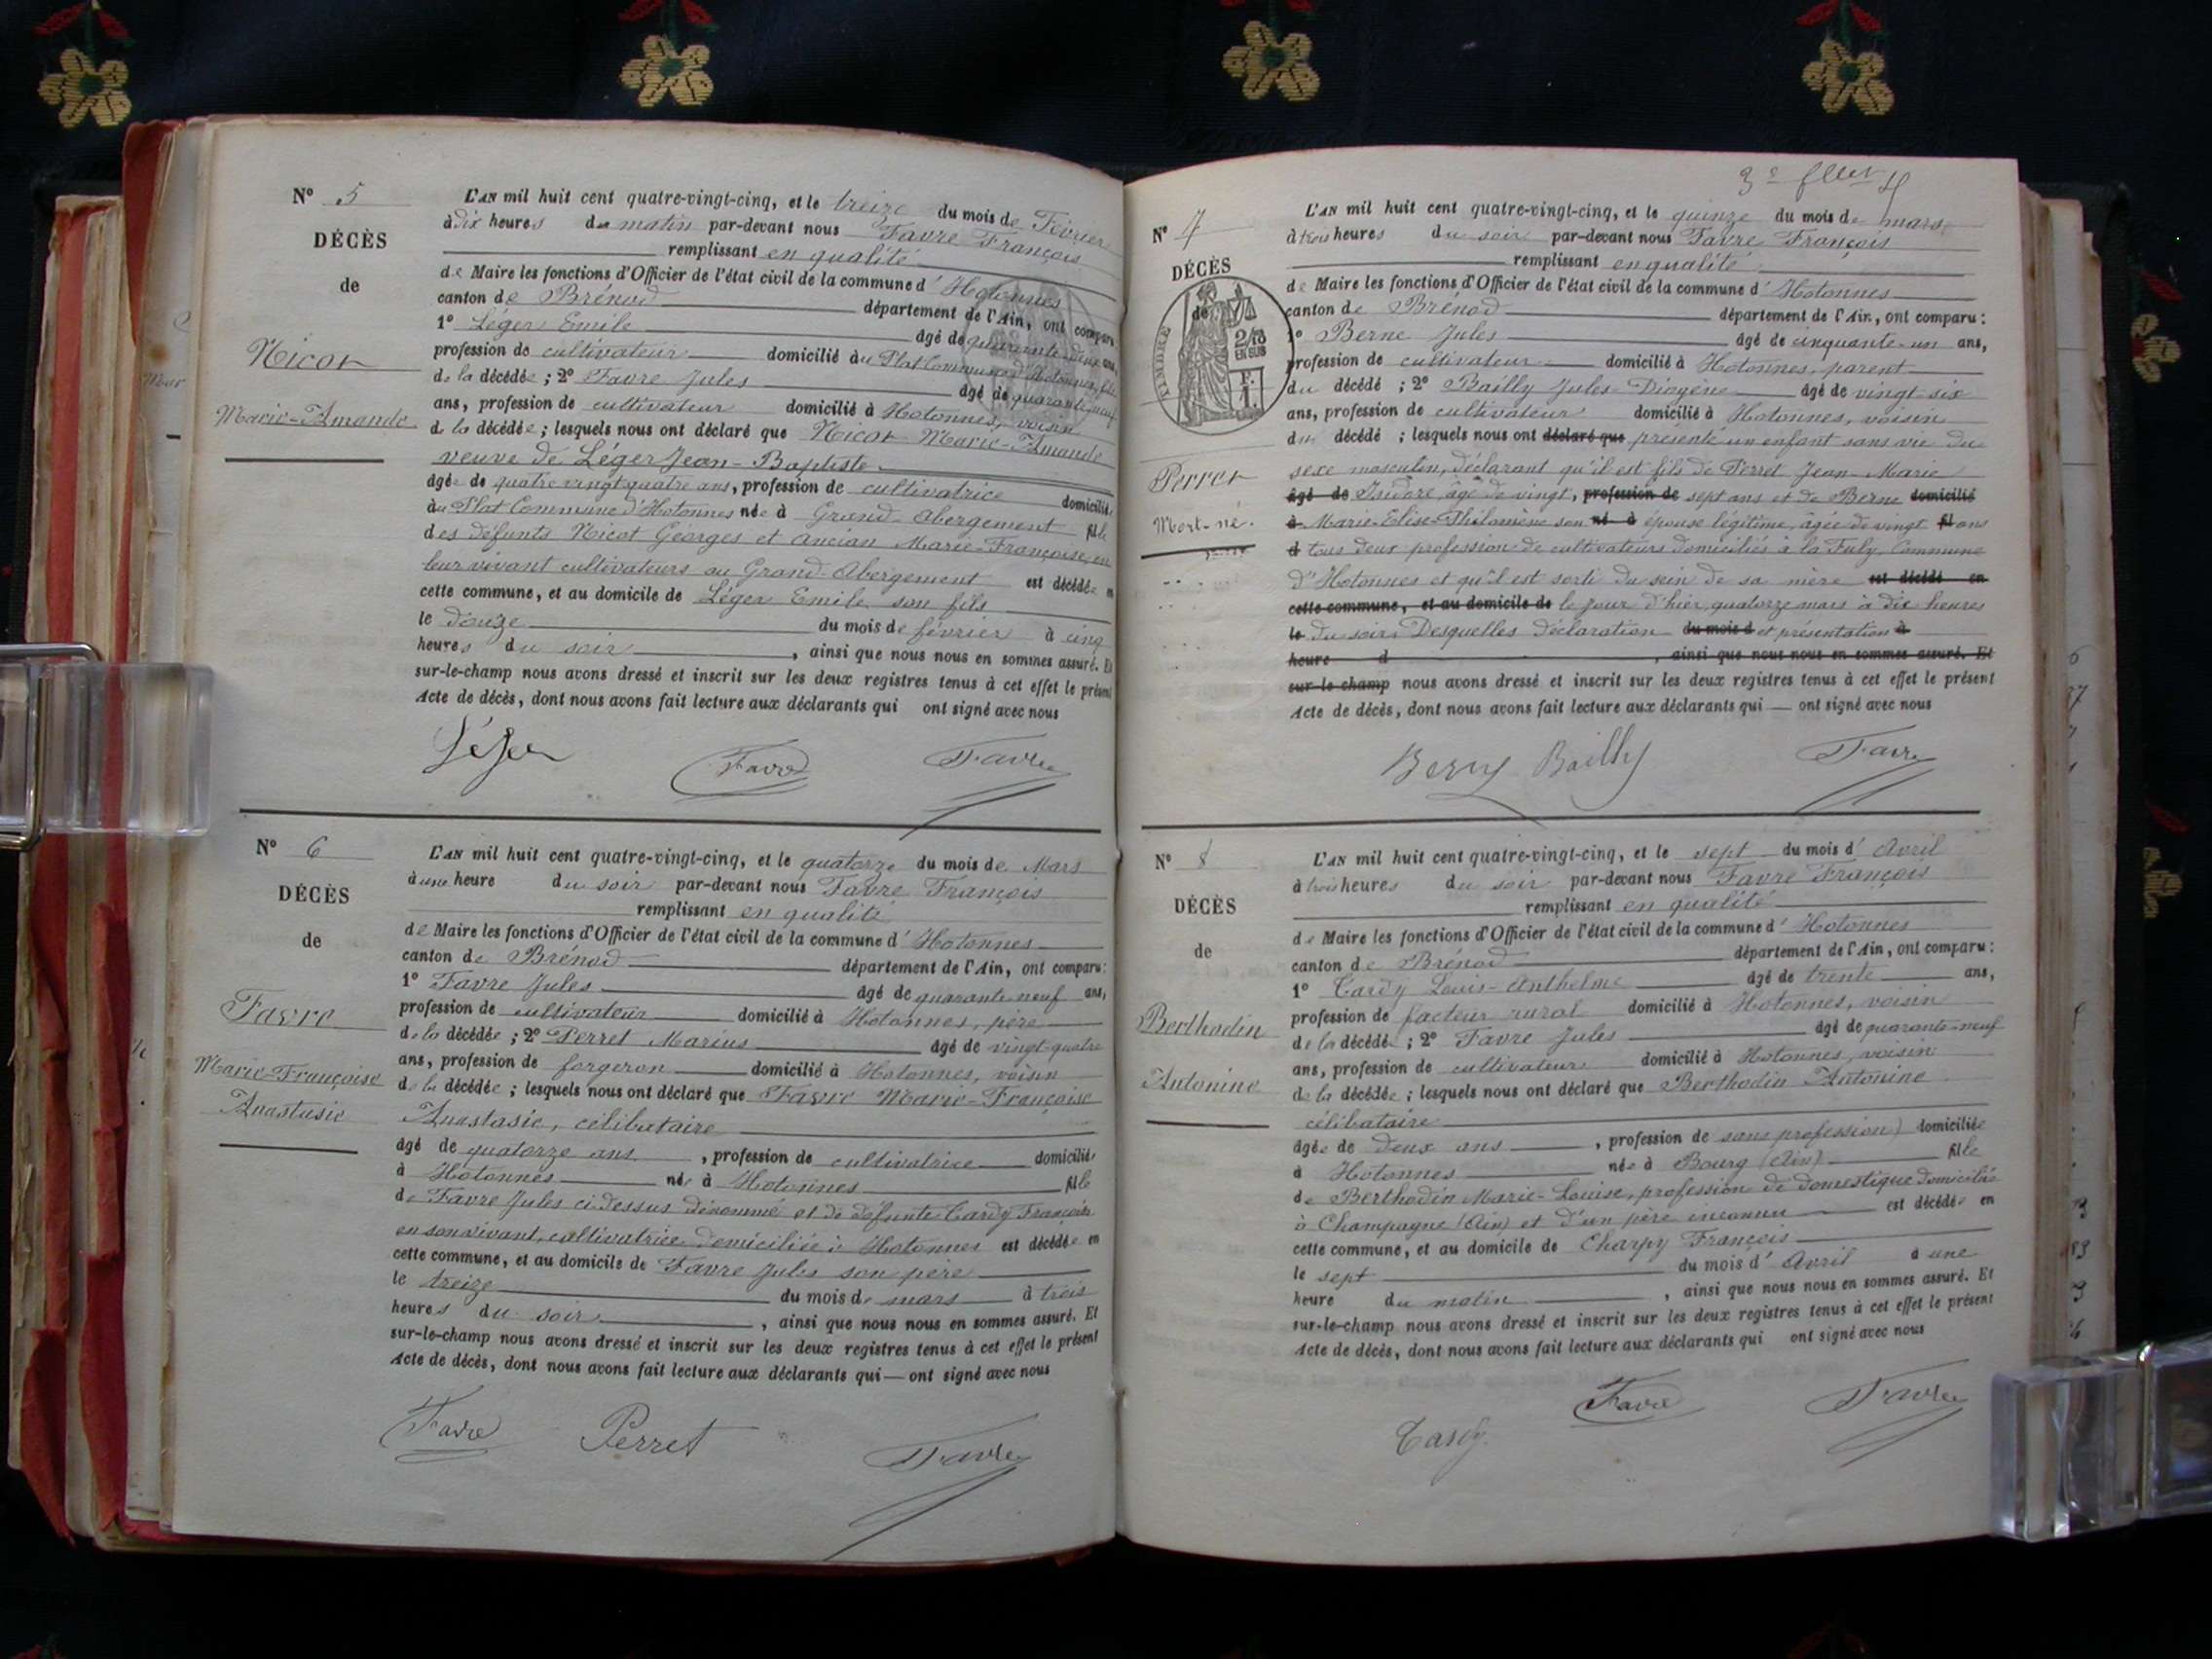 Nº 5
DÉCÈS
de
Nicot
Marie-Amande
L'AN mil huit cent quatre-vingt-cinq, et le treize du mois de Février
à dix heures du matin par-devant nous Favre François
remplissant en qualité
de Maire les fonctions d'Officier de l'état civil de la commune d'Hotonnes
canton de Brénod département de l'Ain, ont comparu
1º Léger Emile âgé de quarante-deux ans,
profession de cultivateur domicilié au Plat Commune d'Hotonnes, fils
de la décédée ; 2º Favre Jules âgé de quarante-neuf
ans, profession de cultivateur domicilié à Hotonnes, voisin
de la décédée ; lesquels nous ont déclaré que Nicot Marie-Amande
veuve de Léger Jean-Baptiste
âgée de quatre vingt quatre ans, profession de cultivatrice domiciliée
au Plat Commune d'Hotonnes née à Grand-Abergement fille
des défunts Nicot Georges et Ancian Marie-Françoise, en
leur vivant cultivateurs au Grand-Abergement est décédée en
cette commune, et au domicile de Léger Emile son fils
le douze du mois de février à cinq
heures du soir, ainsi que nous nous en sommes assuré. Et
sur-le-champ nous avons dressé et inscrit sur les deux registres tenus à cet effet le présent
Acte de décès, dont nous avons fait lecture aux déclarants qui ont signé avec nous
Léger Favre Favre
Nº 6
DÉCÈS
de
Favre
Marie-Françoise
Anastasie
L'AN mil huit cent quatre-vingt-cinq, et le quatorze du mois de Mars
à une heure du soir par-devant nous Favre François
remplissant en qualité
de Maire les fonctions d'Officier de l'état civil de la commune d'Hotonnes
canton de Brénod département de l'Ain, ont comparu :
1º Favre Jules âgé de quarante neuf ans,
profession de cultivateur domicilié à Hotonnes, père
de la décédée ; 2º Perret Marius âgé de vingt-quatre
ans, profession de forgeron domicilié à Hotonnes, voisin
de la décédée ; lesquels nous ont déclaré que Favre Marie-Françoise
Anastasie, célibataire
âgé de quatorze ans, profession de cultivatrice domiciliée
à Hotonnes née à Hotonnes fille
de Favre Jules ci-dessus dénommé et de défunte Cardy Françoise
en son vivant, cultivatrice domiciliée à Hotonnes est décédée en
cette commune, et au domicile de Favre Jules son père
le treize du mois de mars à trois
heures du soir, ainsi que nous nous en sommes assuré. Et
sur-le-champ nous avons dressé et inscrit sur les deux registres tenus à cet effet le présent
Acte de décès, dont nous avons fait lecture aux déclarants qui — ont signé avec nous
Favre Perret Favre
3e
Nº 7
DÉCÈS
de
TIMBRE
2/10
EN SUS
Perret
Mort-né.
L'AN mil huit cent quatre-vingt-cinq, et le quinze du mois de mars
à trois heures du soir par-devant nous Favre François
remplissant en qualité
de Maire les fonctions d'Officier de l'état civil de la commune d'Hotonnes
canton de Brénod département de l'Ain, ont comparu :
1º Berne Jules âgé de cinquante-un ans,
profession de cultivateur domicilié à Hotonnes, parent
du décédé ; 2º Bailly Jules-Diogène âgé de vingt six
ans, profession de cultivateur domicilié à Hotonnes, voisin
du décédé ; lesquels nous ont déclaré que présenté un enfant sans vie du
sexe masculin, déclarant qu'il est fils de Perret Jean-Marie
âgé de Isidore, âgé de vingt, profession de sept ans et de Berne domicilié
à Marie-Elise-Philomène son né à épouse légitime, âgée de vingt fil ans
d tous deux profession de cultivateurs domiciliés à la Fuly, Commune
d'Hotonnes et qu'il est sorti du sein de sa mère est décédé en
cette commune, et au domicile de le jour d'hier, quatorze mars à dix heures
le du soir. Desquelles déclaration du mois d et présentation à
heure d , ainsi que nous nous en sommes assuré. Et
sur-le-champ nous avons dressé et inscrit sur les deux registres tenus à cet effet le présent
Acte de décès, dont nous avons fait lecture aux déclarants qui — ont signé avec nous
Bailly Favre
Nº 8
DÉCÈS
de
Berthodin
Antonine
L'AN mil huit cent quatre-vingt-cinq, et le sept du mois d'Avril
à trois heures du soir par-devant nous Favre François
remplissant en qualité
de Maire les fonctions d'Officier de l'état civil de la commune d'Hotonnes
canton de Brénod département de l'Ain, ont comparu :
1º Cardy Louis-Anthelme âgé de trente ans,
profession de facteur rural domicilié à Hotonnes, voisin
de la décédée ; 2º Favre Jules âgé de quarante-neuf
ans, profession de cultivateur domicilié à Hotonnes, voisin
de la décédée ; lesquels nous ont déclaré que Berthodin Antonine
célibataire
âgée de deux ans, profession de sans profession) domiciliée
à Hotonnes née à Bourg (Ain) fille
de Berthodin Marie-Louise, profession de domestique domiciliée
à Champagne (Ain) et d'un père inconnu est décédée en
cette commune, et au domicile de Charpy François
le sept du mois d'Avril à une
heure du matin, ainsi que nous nous en sommes assuré. Et
sur-le-champ nous avons dressé et inscrit sur les deux registres tenus à cet effet le présent
Acte de décès, dont nous avons fait lecture aux déclarants qui ont signé avec nous
Cardy Favre Favre